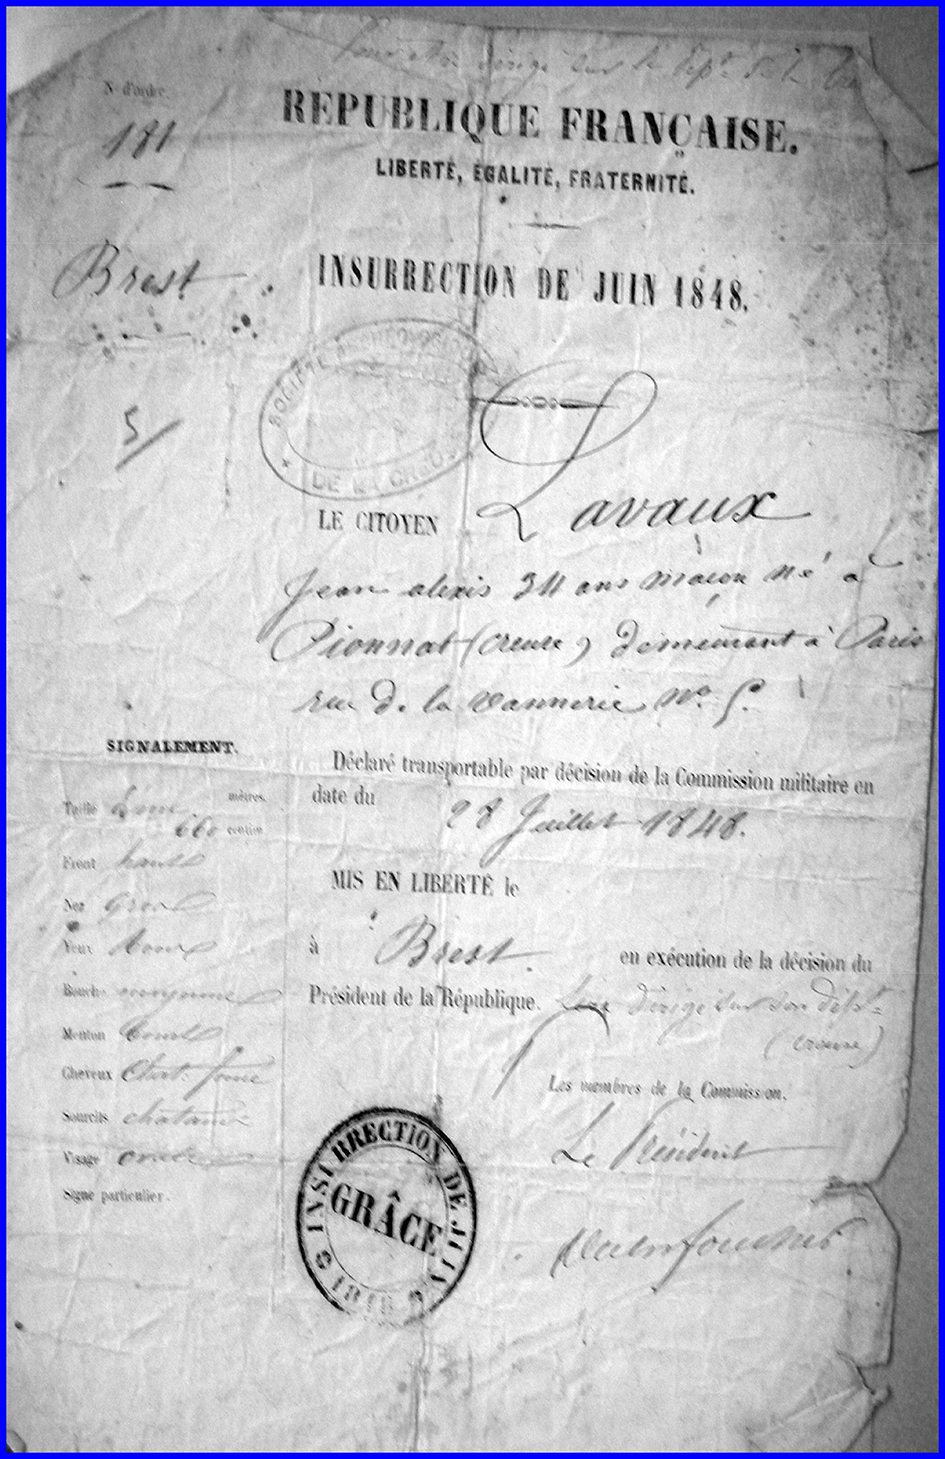 Pour être dirigé sur le dépt de la
N° d'ordre.
181
REPUBLIQUE FRANÇAISE.
LIBERTÉ, ÉGALITÉ, FRATERNITÉ.
Brest
INSURRECTION DE JUIN 1848.
SOCIÉTÉ
DE LA CREUSE
5/
LE CITOYEN Lavaux
Jean alexis 34 ans maçon né à
Pionnat (creuse) demeurant à Paris
rue de la Vannerie N° 5.
SIGNALEMENT.
Déclaré transportable par décision de la Commission militaire en
date du 28 Juillet 1848.
Taille 1 mètres.
660 centim
Front haut
MIS EN LIBERTÉ le
Nez Gros
Yeux
à Brest. en exécution de la décision du
Bouche moyenne
Président de la République. Sera dirigé sur son dépt
(Creuse)
Menton
Cheveux Chat. foncé
Les membres de la Commission.
Sourcils chatains
Le Président
Visage ovale
Signe particulier.
INSURRECTION DE JUIN
GRÂCE
1848